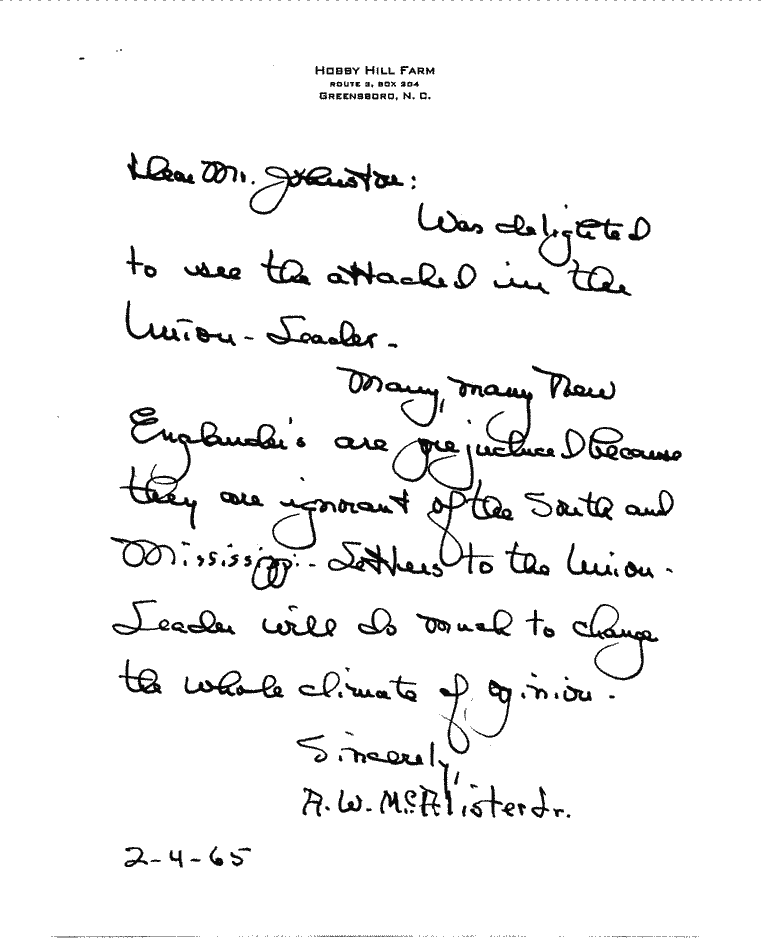 HOBBY HILL FARM
ROUTE 3, BOX 204
GREENSBORO, N. C.
Dear Mr. Johnston:
Was delighted
to see the attached in the
Union-Leader-
Many, many New
Englander's are prejudiced because
they are ignorant of the South and
Mississippi- Letters to the Union-
Leader will do much to change
the whole climate of opinion-
Sincerely,
A. W. McAlister Jr.
2-4-65